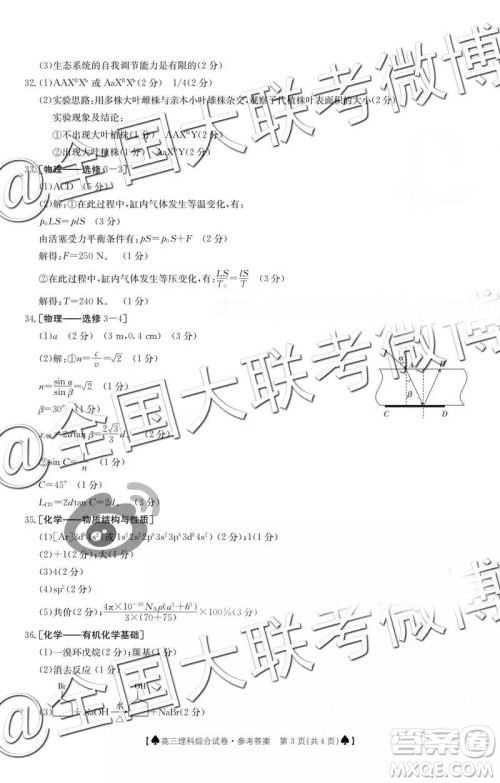 (3)生态系统的自我调节能力是有限的(2分)
32.(1)AAXᴮXᵇ 或 AaXᴮXᵇ(2分) 1/4(2分)
(2)实验思路:用多株大叶雌株与亲本小叶雄株杂交,观察子代植株叶表面积的大小(2分)
实验现象及结论:
①不出现大叶植株(1分) AAXᴮY(2分)
②出现大叶植株(1分) AaXᴮY(2分)
33.[物理——选修3-3]
(1)ACD (5分)
(2)解:①在此过程中,缸内气体发生等温变化,有:
p₀LS=plS (3分)
由活塞受力平衡条件有:pS=p₀S+F (2分)
解得:F=250 N。(1分)
②在此过程中,缸内气体发生等压变化,有:LS/T₀=lS/T (3分)
解得:T=240 K。(1分)
34.[物理——选修3-4]
(1)a (2分) (3 m,0.4 cm) (3分)
(2)解:①n=c/v=√2 (1分)
n=sin α/sin β=√2 (1分)
β=30° (1分)
=2dtan β=2√3/3 d (2分)
②sin C=1/n (1分)
C=45° (1分)
L_CD=2dtan C=2d。 (2分)
A
B
α
β
C
D
35.[化学——物质结构与性质]
(1)[Ar]3d⁸4s²(或1s²2s²2p⁶3s²3p⁶3d⁸4s²)(2分);1(1分)
(2)+1(2分);大(1分)
(3)4(2分)
(4)sp²(2分)
(5)共价(2分);×100%(3分)
36.[化学——有机化学基础]
(1)一溴环戊烷(2分);羰基(1分)
(2)消去反应(1分)
Br
OH
水
△
+NaBr(2分)
【♠高三理科综合试卷·参考答案 第3页(共4页)♠】
@全国大联考微博
@全国大联考微博
@全国大联考微博
答案圈